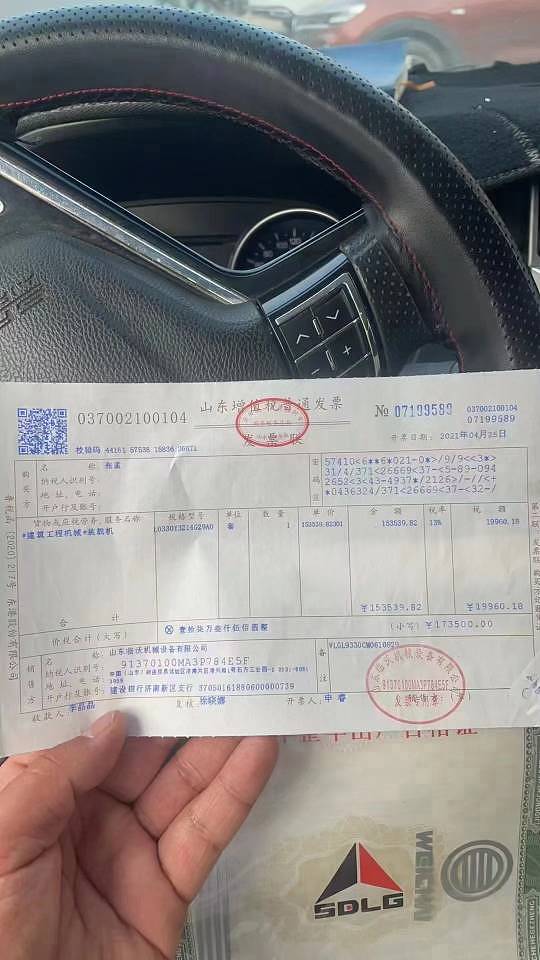 037002100104
山东增值税普通发票
发票联
№ 07199589
037002100104
07199589
校验码 44161 57538 15836 26671
开票日期: 2021年04月25日
购买方
名 称: 张孟
纳税人识别号:
地 址、电 话:
开户行及账号:
密码区
57410<6**6*021-0*>/9/9<<3*>
31/4/371<26669<37-<5-89-094
2652<3<43-4937*/2126>/-//<+
*0436324/371<26669<37-<32-/
货物或应税劳务、服务名称
规格型号
单位
数 量
单 价
金 额
税率
税 额
*建筑工程机械*装载机
套
1
153539.82301
153539.82
13%
19960.18
合 计
￥153539.82
￥19960.18
价税合计(大写)
ⓧ 壹拾柒万叁仟伍佰圆整
(小写) ￥173500.00
销售方
名 称: 山东临沃机械设备有限公司
纳税人识别号: 91370100MA3P784E5F
地 址、电 话:
开户行及账号: 建设银行济南新区支行 37050161880600000739
备注
收款人: 李晶晶
复核: 徐晓娜
开票人: 申睿
山东临沃机械设备有限公司
91370100MA3P784E5F
发票专用章
SDLG
WEICHAI